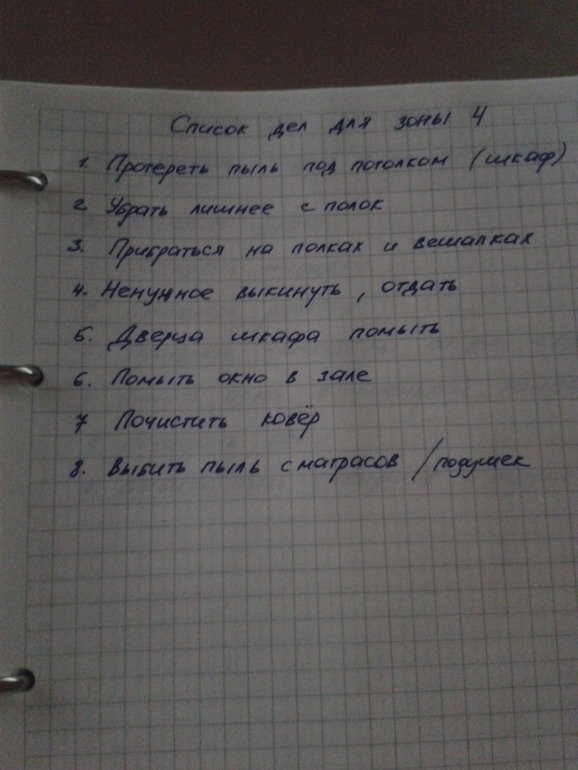 Список дел для зоны 4
1. Протереть пыль под потолком (шкаф)
2 Убрать лишнее с полок
3. Прибраться на полках и вешалках
4. Ненужное выкинуть, отдать
5. Дверца шкафа помыть
6. Помыть окно в зале
7 Почистить ковёр
8. Выбить пыль с матрасов / подушек